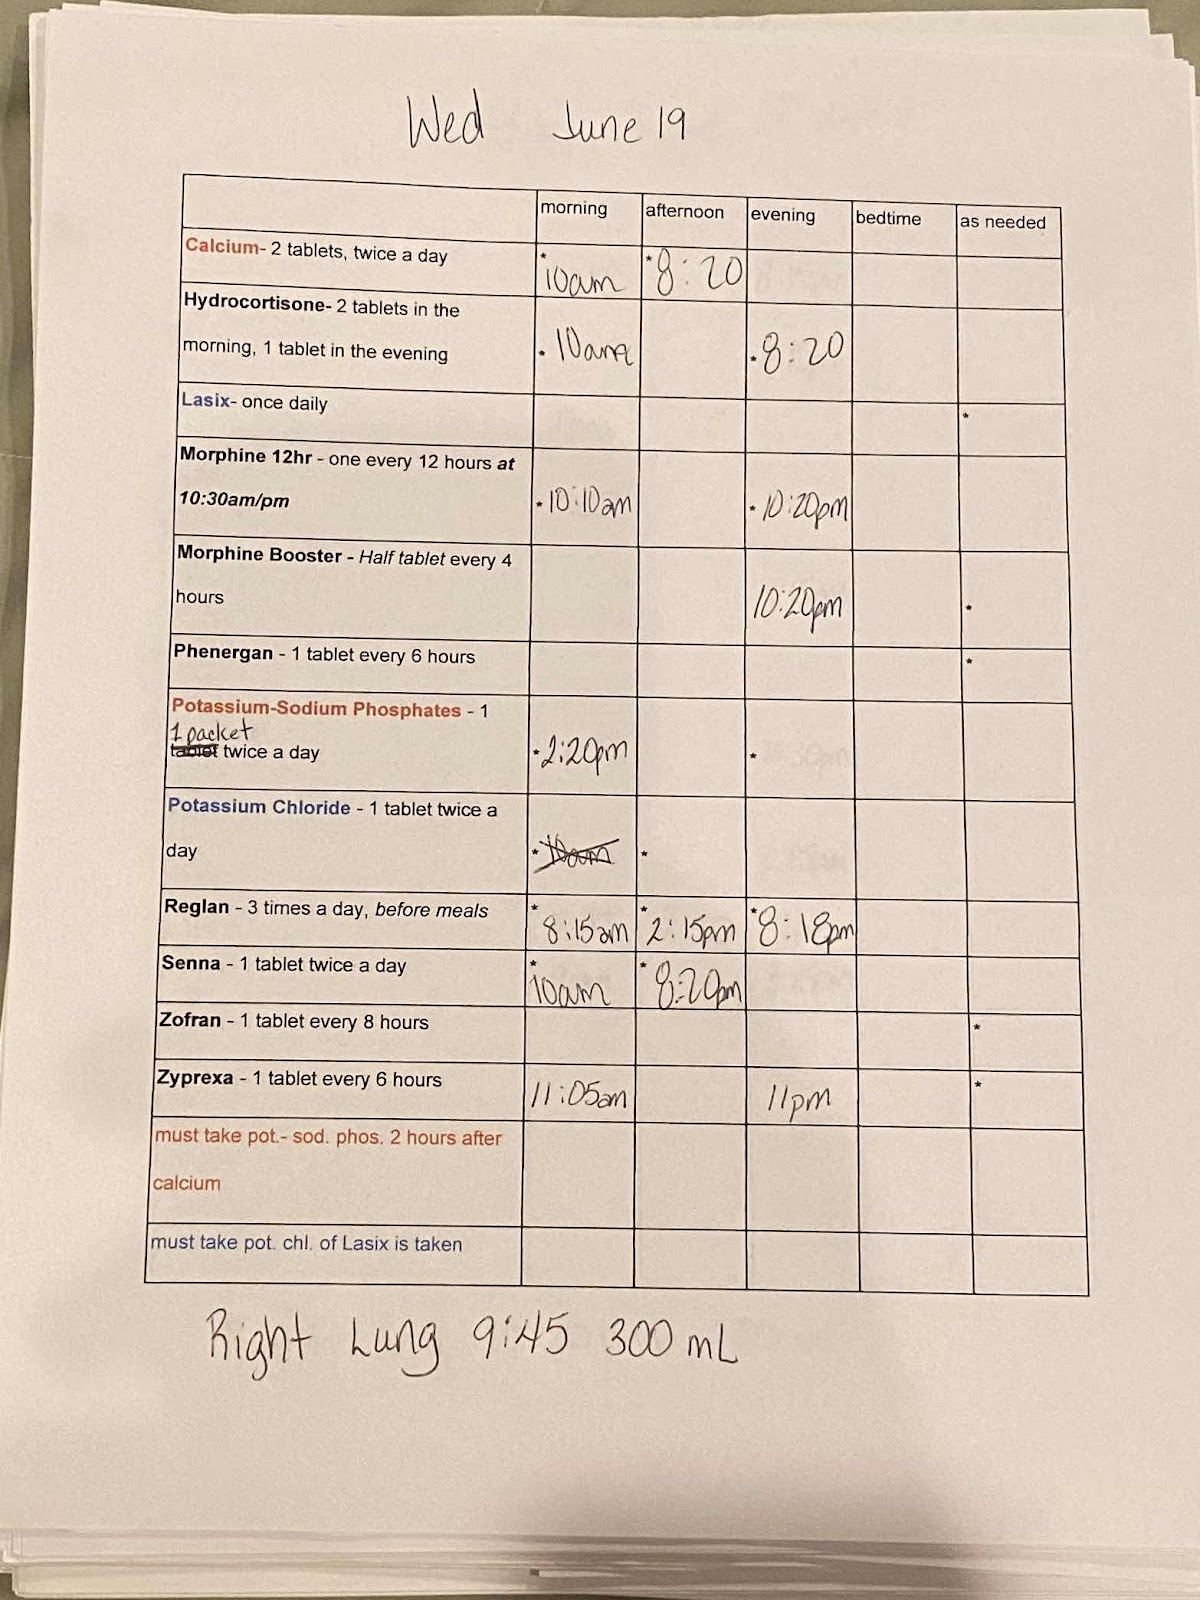 Wed June 19
morning afternoon evening bedtime as needed
Calcium- 2 tablets, twice a day * 10am * 8:20
Hydrocortisone- 2 tablets in the
morning, 1 tablet in the evening * 10am * 8:20
Lasix- once daily *
Morphine 12hr - one every 12 hours at
10:30am/pm * 10:10am * 10:20pm
Morphine Booster - Half tablet every 4
hours 10:20pm *
Phenergan - 1 tablet every 6 hours *
Potassium-Sodium Phosphates - 1
1 packet
tablet twice a day * 2:20pm *
Potassium Chloride - 1 tablet twice a
day * 10am *
Reglan - 3 times a day, before meals * 8:15am * 2:15pm * 8:18pm
Senna - 1 tablet twice a day * 10am * 8:20pm
Zofran - 1 tablet every 8 hours *
Zyprexa - 1 tablet every 6 hours 11:05am 11pm *
must take pot.- sod. phos. 2 hours after
calcium
must take pot. chl. of Lasix is taken
Right Lung 9:45 300 mL